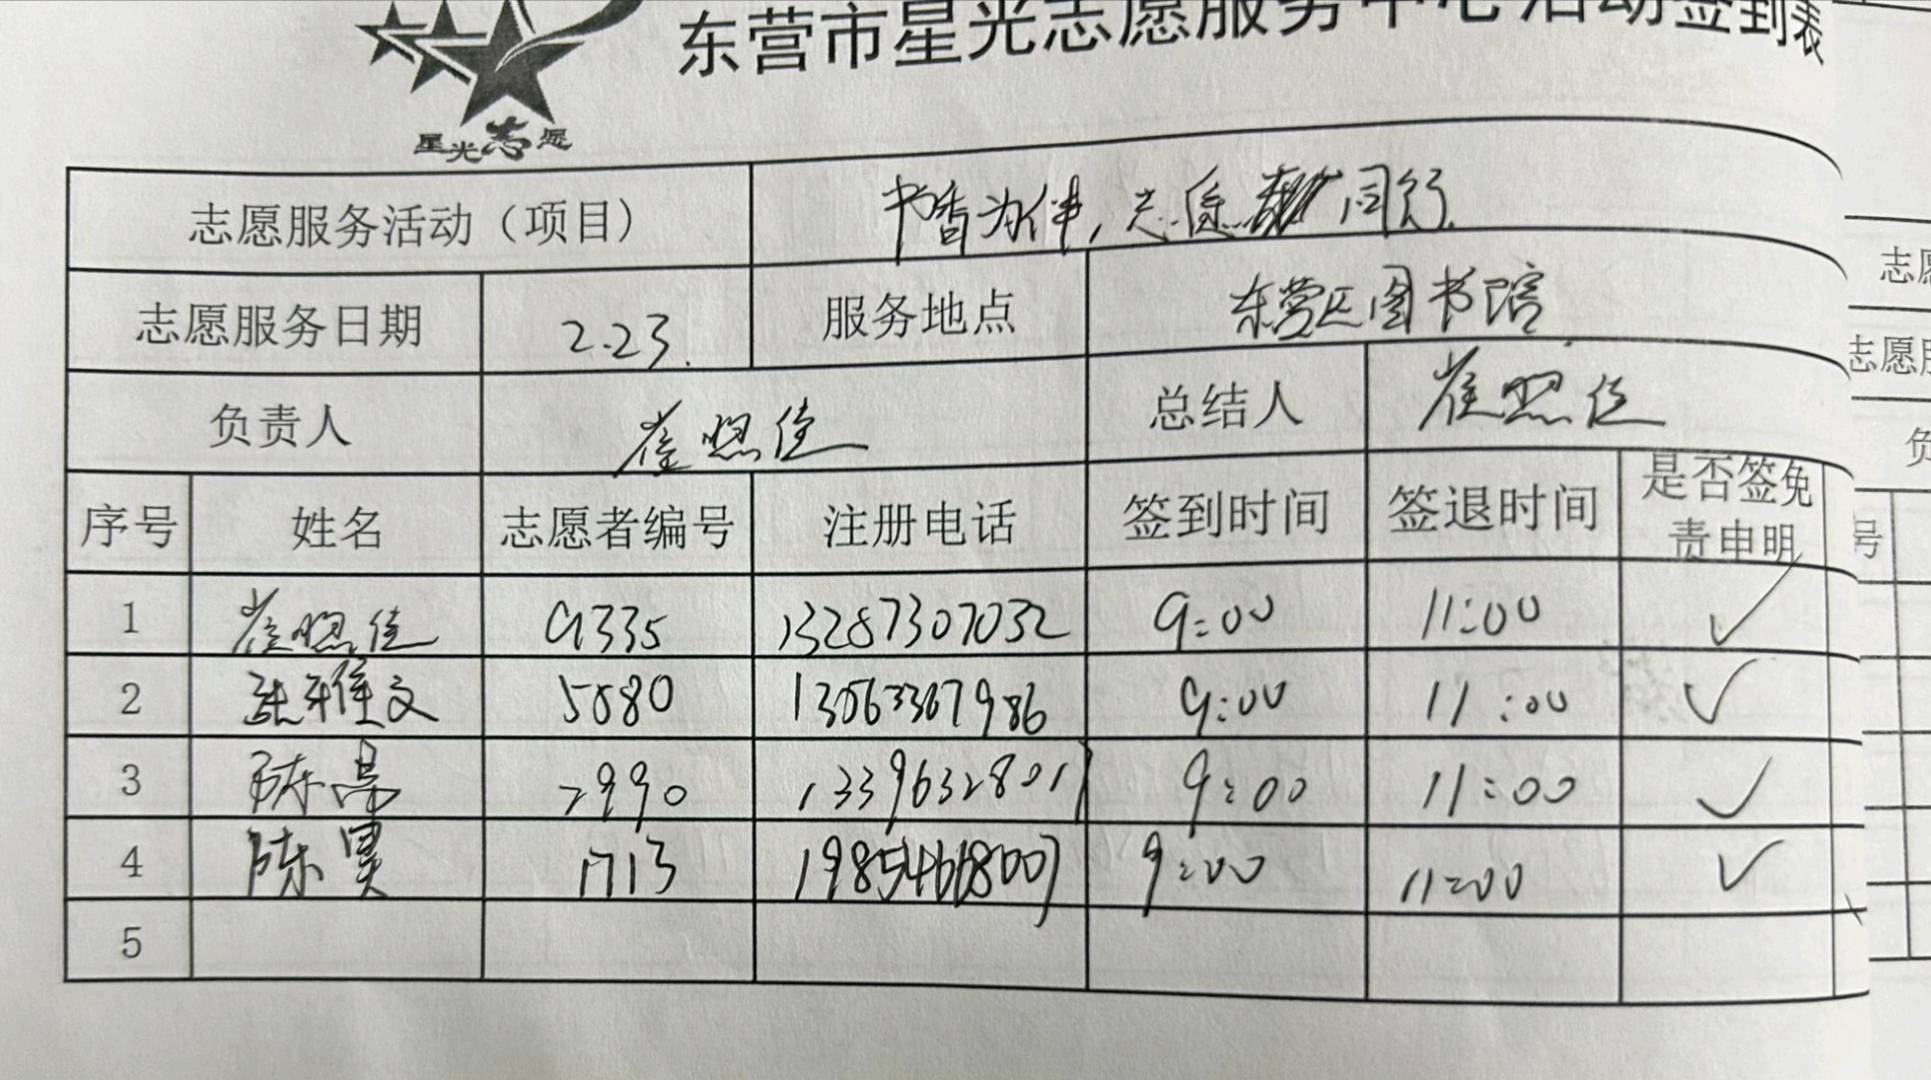 东营市星光志愿服务中心活动签到表
星光志愿
志愿服务活动（项目） 书香为伴，志愿 同行.
志愿服务日期 2.23. 服务地点 东营区图书馆
负责人 崔照佳 总结人 崔照佳
序号 姓名 志愿者编号 注册电话 签到时间 签退时间 是否签免
责申明
1 崔照佳 9335 13287307032 9:00 11:00 ✓
2 张雅文 5880 9:00 11:00 ✓
3 陈亮 2990 9:00 11:00 ✓
4 陈昊 1713 9:00 11:00 ✓
5
志愿
志愿服
负
号